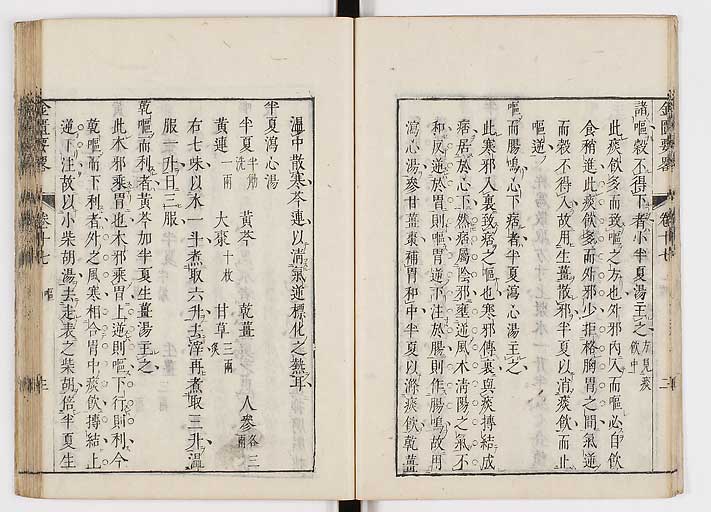 金匱要畧 卷十七 二
諸嘔穀不得下者小半夏湯主之 方見痰飲中
此痰飲多而致嘔之方也外邪內入而嘔心自飲
食稍進此痰飲多而外邪少拒格胸胃之間氣逆
而穀不得入故用生薑散邪半夏以消痰飲而止
嘔逆
嘔而腸鳴心下痞者半夏瀉心湯主之
此寒邪入裏致痞之嘔也寒邪傳裏與痰搏結成
痞居於心下然痞屬陰邪壅逆風木清陽之氣不
和反逆於胃則嘔胃逆下注於腸則作腸鳴故用
瀉心湯參甘薑棗補胃和中半夏以滌痰飲乾薑
溫中散寒芩連以清氣逆標化之熱耳
半夏瀉心湯
半夏 半觔洗 黃芩 乾薑 人參 各三兩
黃連 一兩 大棗 十枚 甘草 三兩炙
右七味以水一斗煮取六升去滓再煮取三升溫
服一升日三服
乾嘔而利者黃芩加半夏生薑湯主之
此木邪乘胃也木邪乘胃上逆則嘔下行則利今
乾嘔而下利者外之風寒相合胃中痰飲搏結上
逆下注故以小柴胡湯去走表之柴胡倍半夏生
金匱要畧 卷十七 嘔